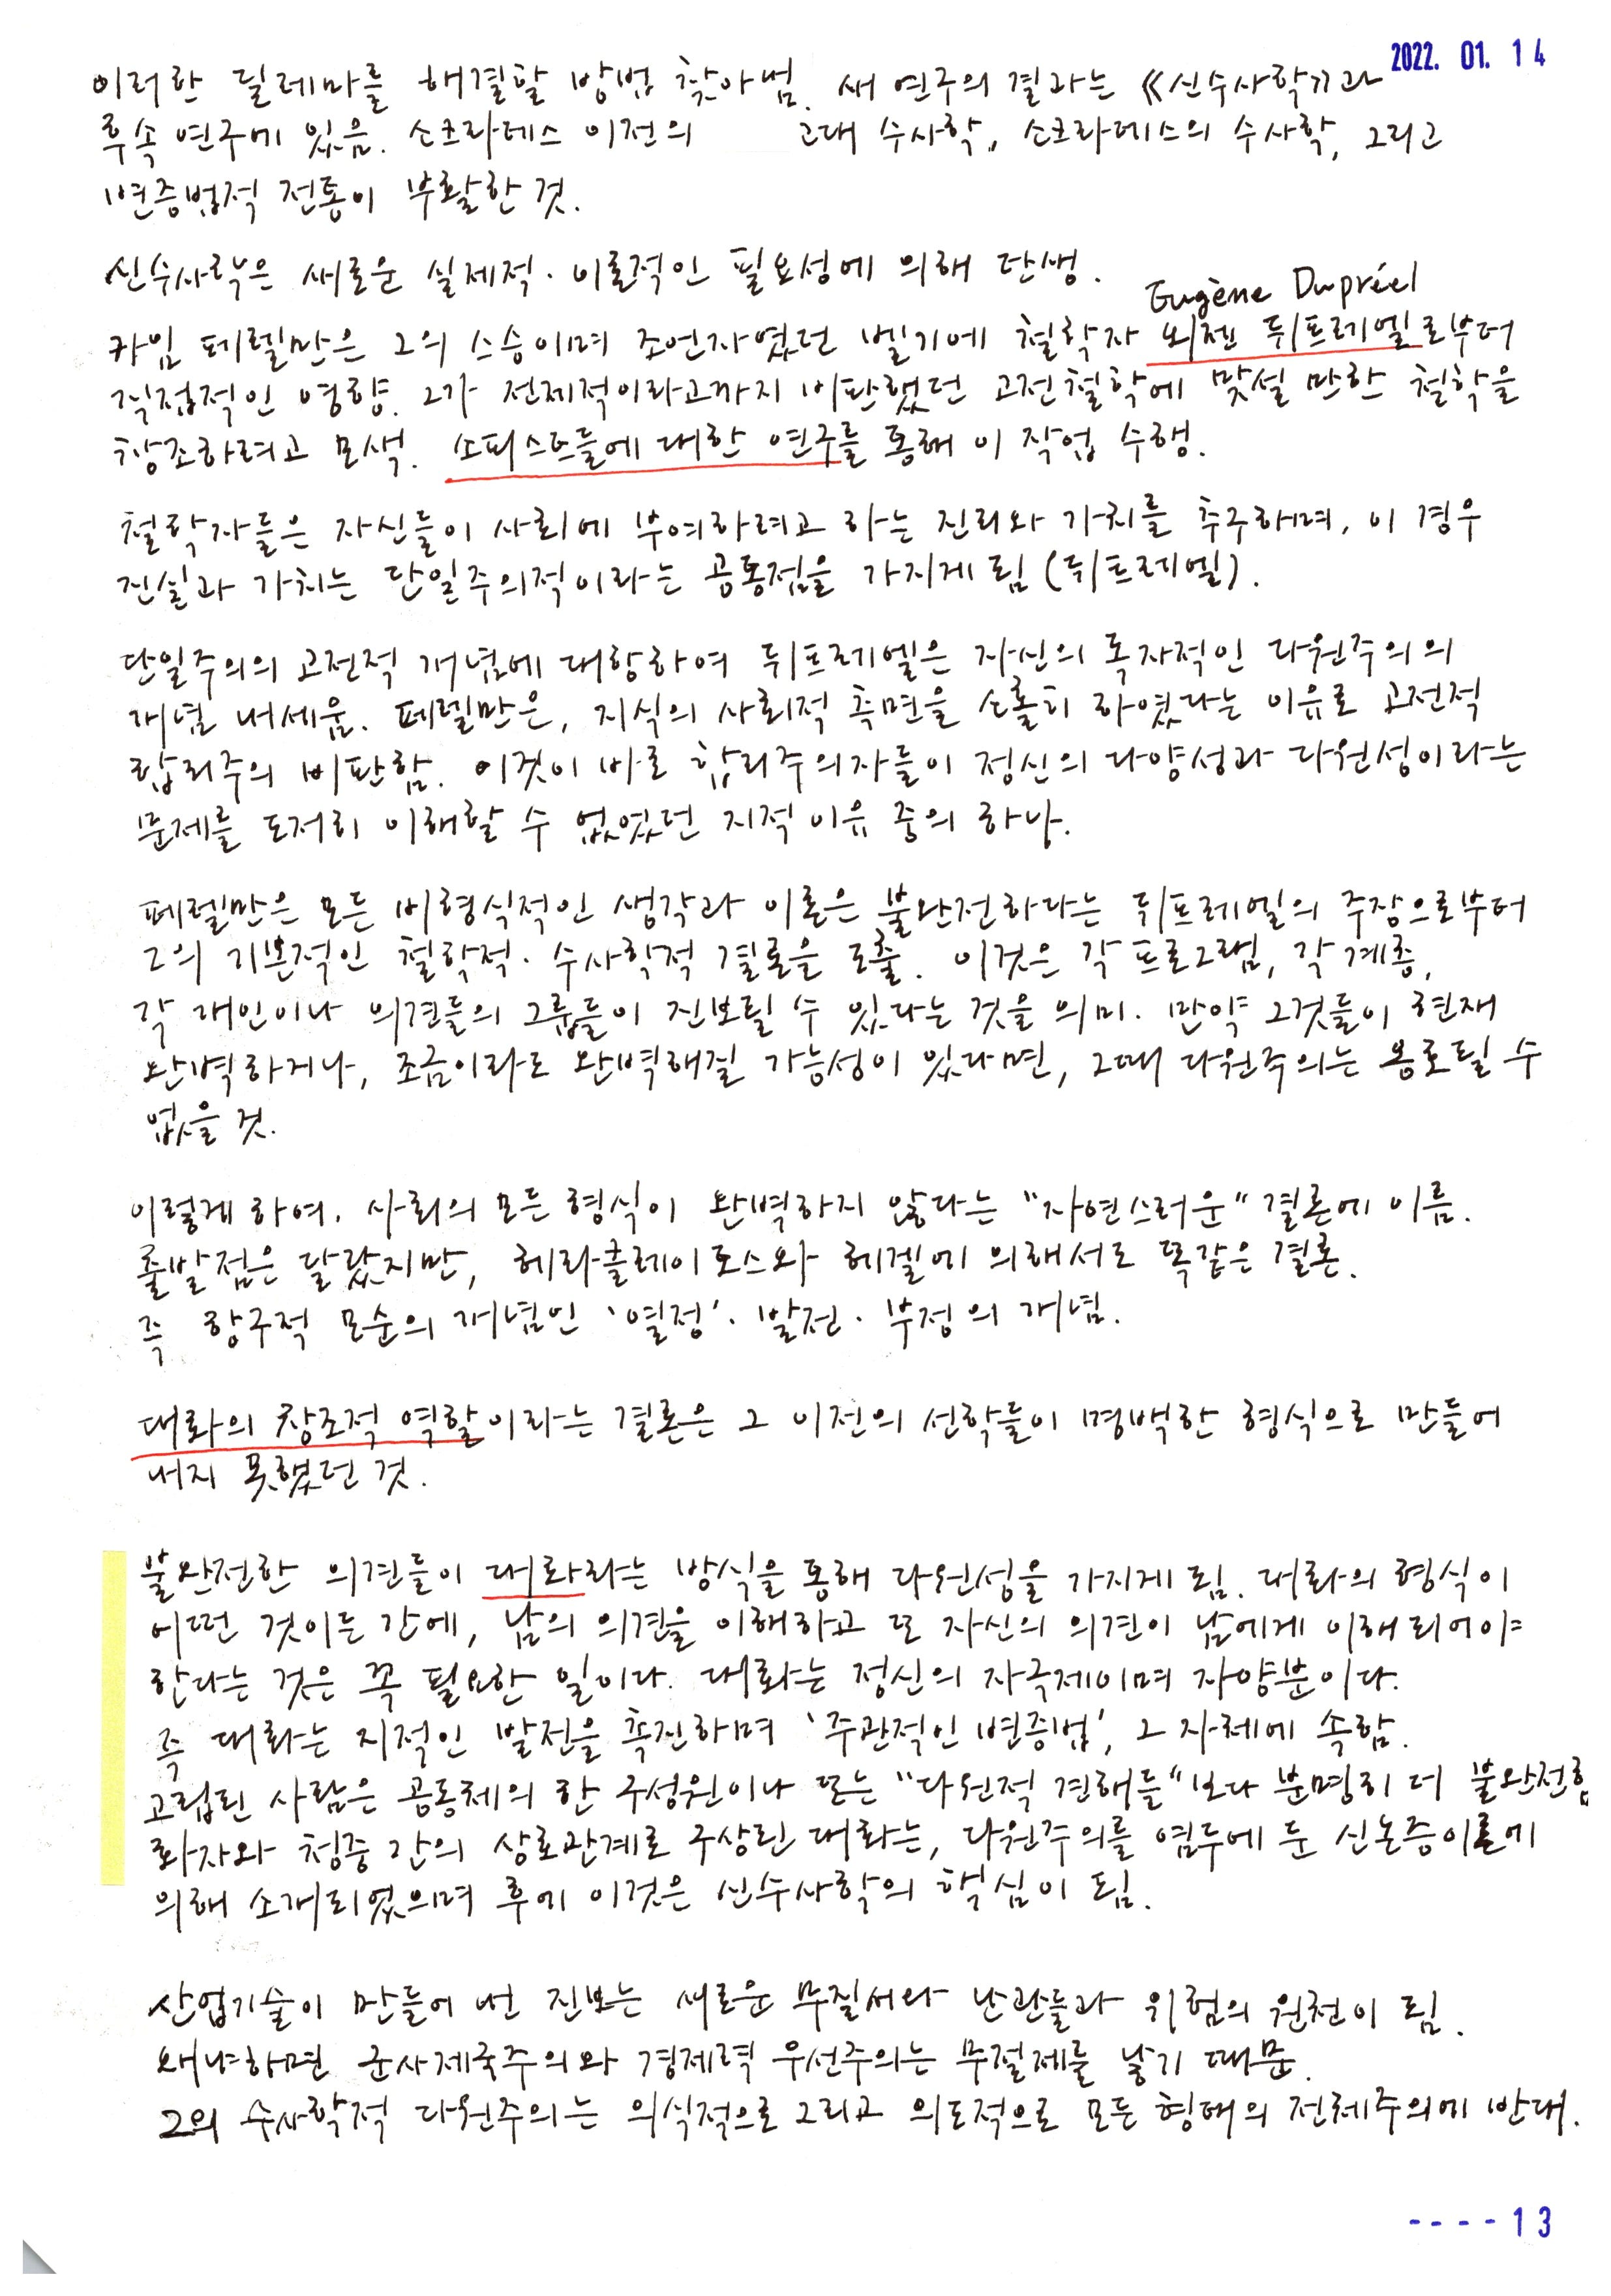 2022. 01. 14
이러한 딜레마를 해결할 방법 찾아냄. 새 연구의 결과는 《신수사학》과
후속 연구에 있음. 소크라테스 이전의 고대 수사학, 소크라테스의 수사학, 그리고
변증법적 전통이 부활한 것.
신수사학은 새로운 실제적·이론적인 필요성에 의해 탄생.
Eugène Dupréel
카임 페렐만은 그의 스승이며 조언자였던 벨기에 철학자 외젠 뒤프레엘로부터
직접적인 영향. 그가 전제적이라고까지 비판했던 고전철학에 맞설 만한 철학을
창조하려고 모색. 소피스트들에 대한 연구를 통해 이 작업 수행.
철학자들은 자신들이 사회에 부여하려고 하는 진리와 가치를 추구하며, 이 경우
진실과 가치는 단일주의적이라는 공통점을 가지게 됨 (뒤프레엘).
단일주의의 고전적 개념에 대항하여 뒤프레엘은 자신의 독자적인 다원주의의
개념 내세움. 페렐만은, 지식의 사회적 측면을 소홀히 하였다는 이유로 고전적
합리주의 비판함. 이것이 바로 합리주의자들이 정신의 다양성과 다원성이라는
문제를 도저히 이해할 수 없었던 지적 이유 중의 하나.
페렐만은 모든 비형식적인 생각과 이론은 불완전하다는 뒤프레엘의 주장으로부터
그의 기본적인 철학적·수사학적 결론을 도출. 이것은 각 프로그램, 각 계층,
각 개인이나 의견들의 그룹들이 진보될 수 있다는 것을 의미. 만약 그것들이 현재
완벽하거나, 조금이라도 완벽해질 가능성이 있다면, 그때 다원주의는 옹호될 수
없을 것.
이렇게 하여, 사회의 모든 형식이 완벽하지 않다는 "자연스러운" 결론에 이름.
출발점은 달랐지만, 헤라클레이토스와 헤겔에 의해서도 똑같은 결론.
즉 항구적 모순의 개념인 '열정'·발전·부정의 개념.
대화의 창조적 역할이라는 결론은 그 이전의 선학들이 명백한 형식으로 만들어
내지 못했던 것.
불완전한 의견들이 대화라는 방식을 통해 다원성을 가지게 됨. 대화의 형식이
어떤 것이든 간에, 남의 의견을 이해하고 또 자신의 의견이 남에게 이해되어야
한다는 것은 꼭 필요한 일이다. 대화는 정신의 자극제이며 자양분이다.
즉 대화는 지적인 발전을 촉진하며 '주관적인 변증법', 그 자체에 속함.
고립된 사람은 공동체의 한 구성원이나 또는 "다원적 견해들"보다 분명히 더 불완전함
화자와 청중 간의 상호관계로 구상된 대화는, 다원주의를 염두에 둔 신논증이론에
의해 소개되었으며 후에 이것은 신수사학의 핵심이 됨.
산업기술이 만들어 낸 진보는 새로운 무질서와 난관들과 위험의 원천이 됨.
왜냐하면 군사제국주의와 경제력 우선주의는 무절제를 낳기 때문.
그의 수사학적 다원주의는 의식적으로 그리고 의도적으로 모든 형태의 전체주의에 반대.
----13